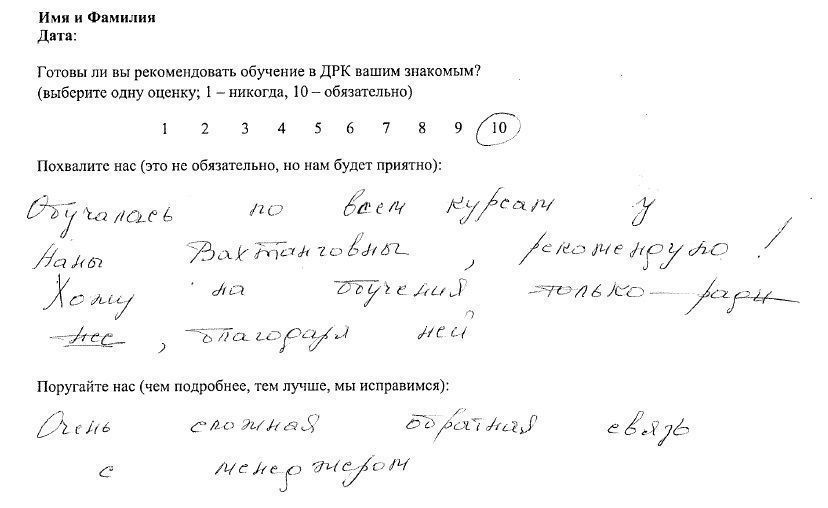 Имя и Фамилия
Дата:
Готовы ли вы рекомендовать обучение в ДРК вашим знакомым?
(выберите одну оценку; 1 – никогда, 10 – обязательно)
1 2 3 4 5 6 7 8 9 10
Похвалите нас (это не обязательно, но нам будет приятно):
Обучалась по всем курсам у
Наны Вахтанговны, рекомендую!
Хожу на обучения только ради
нее, благодаря ней
Поругайте нас (чем подробнее, тем лучше, мы исправимся):
Очень сложная обратная связь
с менеджером